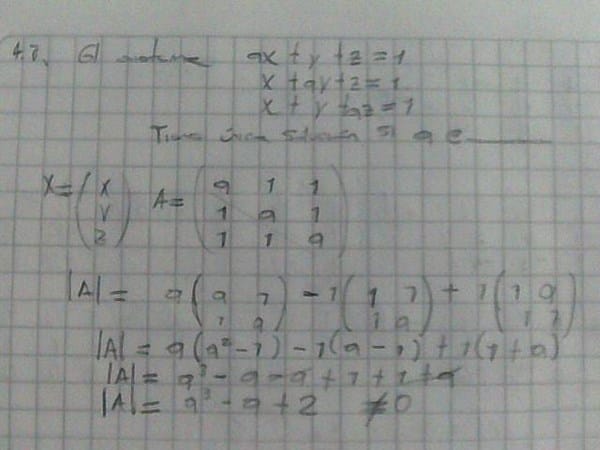 4.7. El sistema ax + y + z = 1
x + ay + z = 1
x + y + az = 1
Tiene única solución si a ∈ ______
X = (x y z) A = (a 1 1; 1 a 1; 1 1 a)
|A| = a (a 1; 1 a) - 1 (1 1; 1 a) + 1 (1 a; 1 1)
|A| = a(a² - 1) - 1(a - 1) + 1(1 + a)
|A| = a³ - a - a + 1 + 1 + a
|A| = a³ - a + 2 ≠ 0